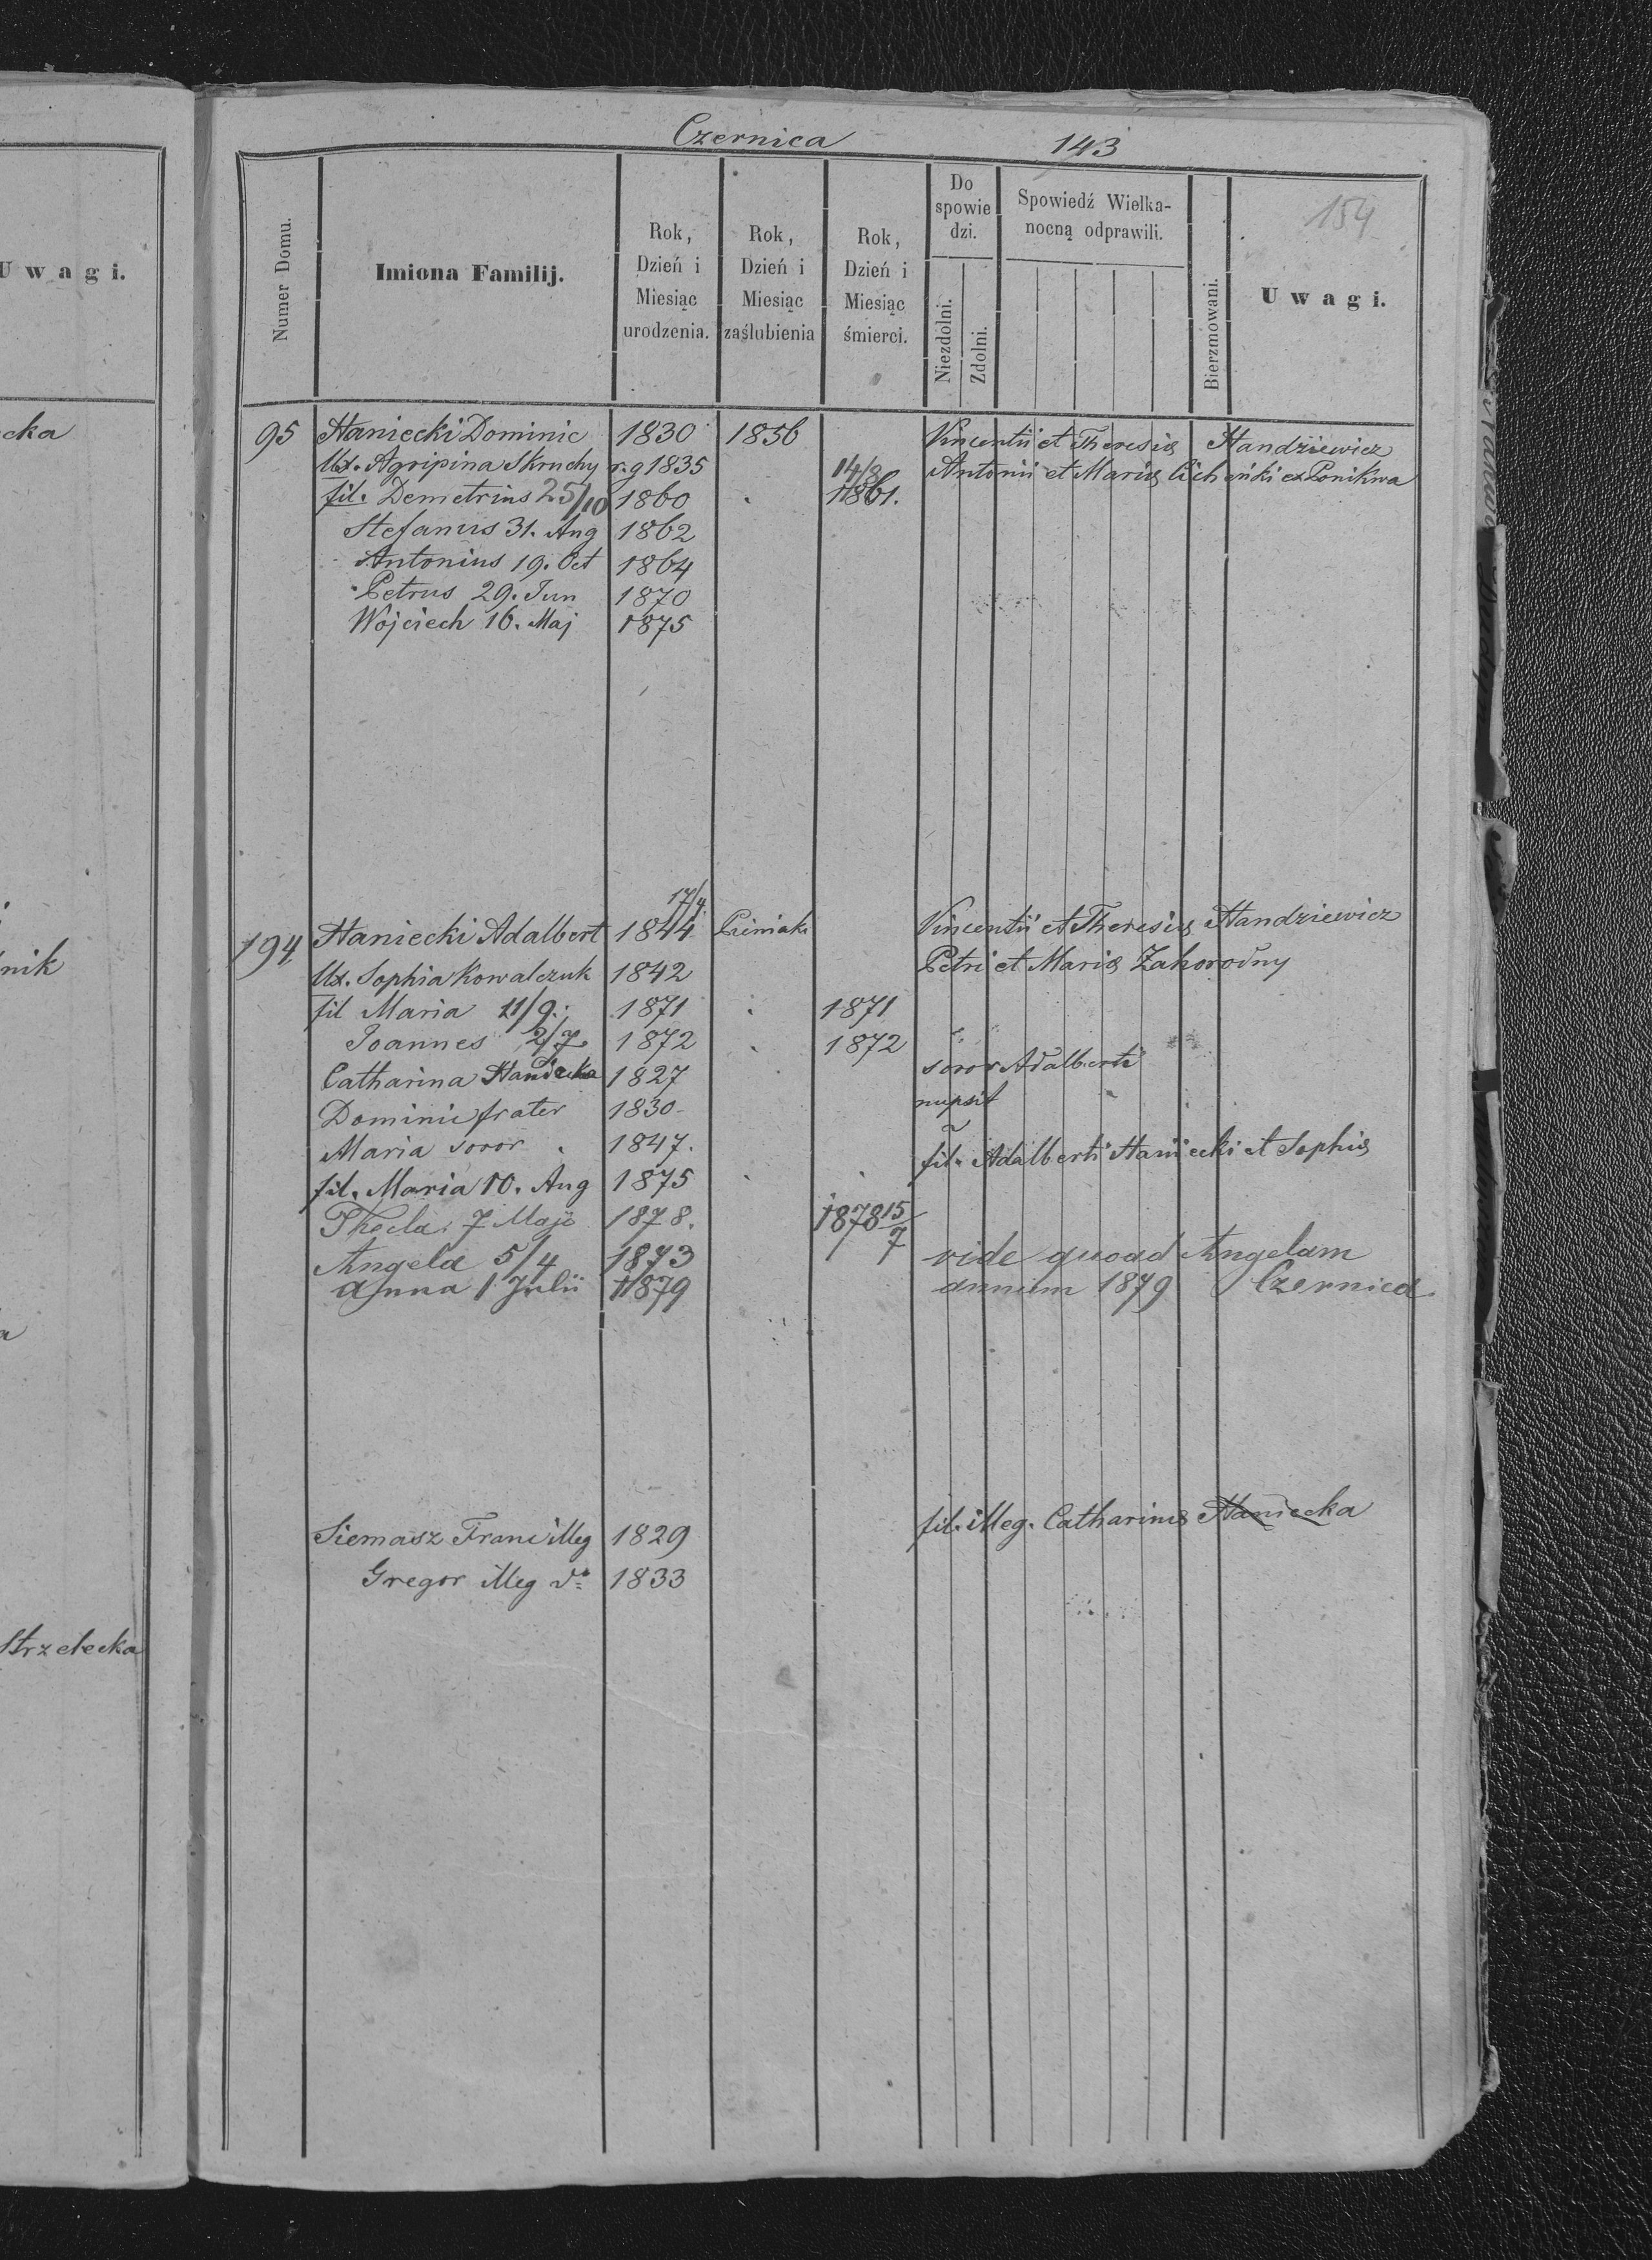 Czernica 143
154
Numer Domu.
Imiona Familij.
Rok, Dzień i Miesiąc urodzenia.
Rok, Dzień i Miesiąc zaślubienia
Rok, Dzień i Miesiąc śmierci.
Do spowie dzi.
Niezdolni.
Zdolni.
Spowiedź Wielka-
nocną odprawili.
Bierzmowani.
Uwagi.
Uwagi.
cka
nik
Strzelecka
95 Haniecki Dominic 1830 1856 Vincentii et Theresiæ Handziewicz
Ux. Agripina Skruchy r.g 1835 Antonii et Mariæ ex Ponikwa
fil. Demetrius 25/10 1860 14/8 1861.
Stefanus 31. Aug 1862
Antonius 19. Oct 1864
Petrus 29. Jun 1870
Wojciech 16. Maj 1875
194 Haniecki Adalbert 17/4 1844 Pieniaki Vincentii et Theresiæ Handziewicz
Ux. Sophia Kowalczuk 1842 Petri et Mariæ Zahorodny
fil Maria 11/9. 1871 1871
Joannes 2/7 1872 1872
Catharina 1827 soror Adalberti
Dominic frater 1830 nupsit
Maria soror 1847.
fil. Maria 10. Aug 1875 fil. Adalberti Haniecki et Sophiæ
Thecla 7 Maji 1878. 1878 15/7
Angela 5/4 1873 vide quoad Angelam
Anna 1 Julii 1879 annum 1879 Czernica
Siemasz Franc illeg 1829 fil. illeg. Catharinæ Haniecka
Gregor illeg do 1833